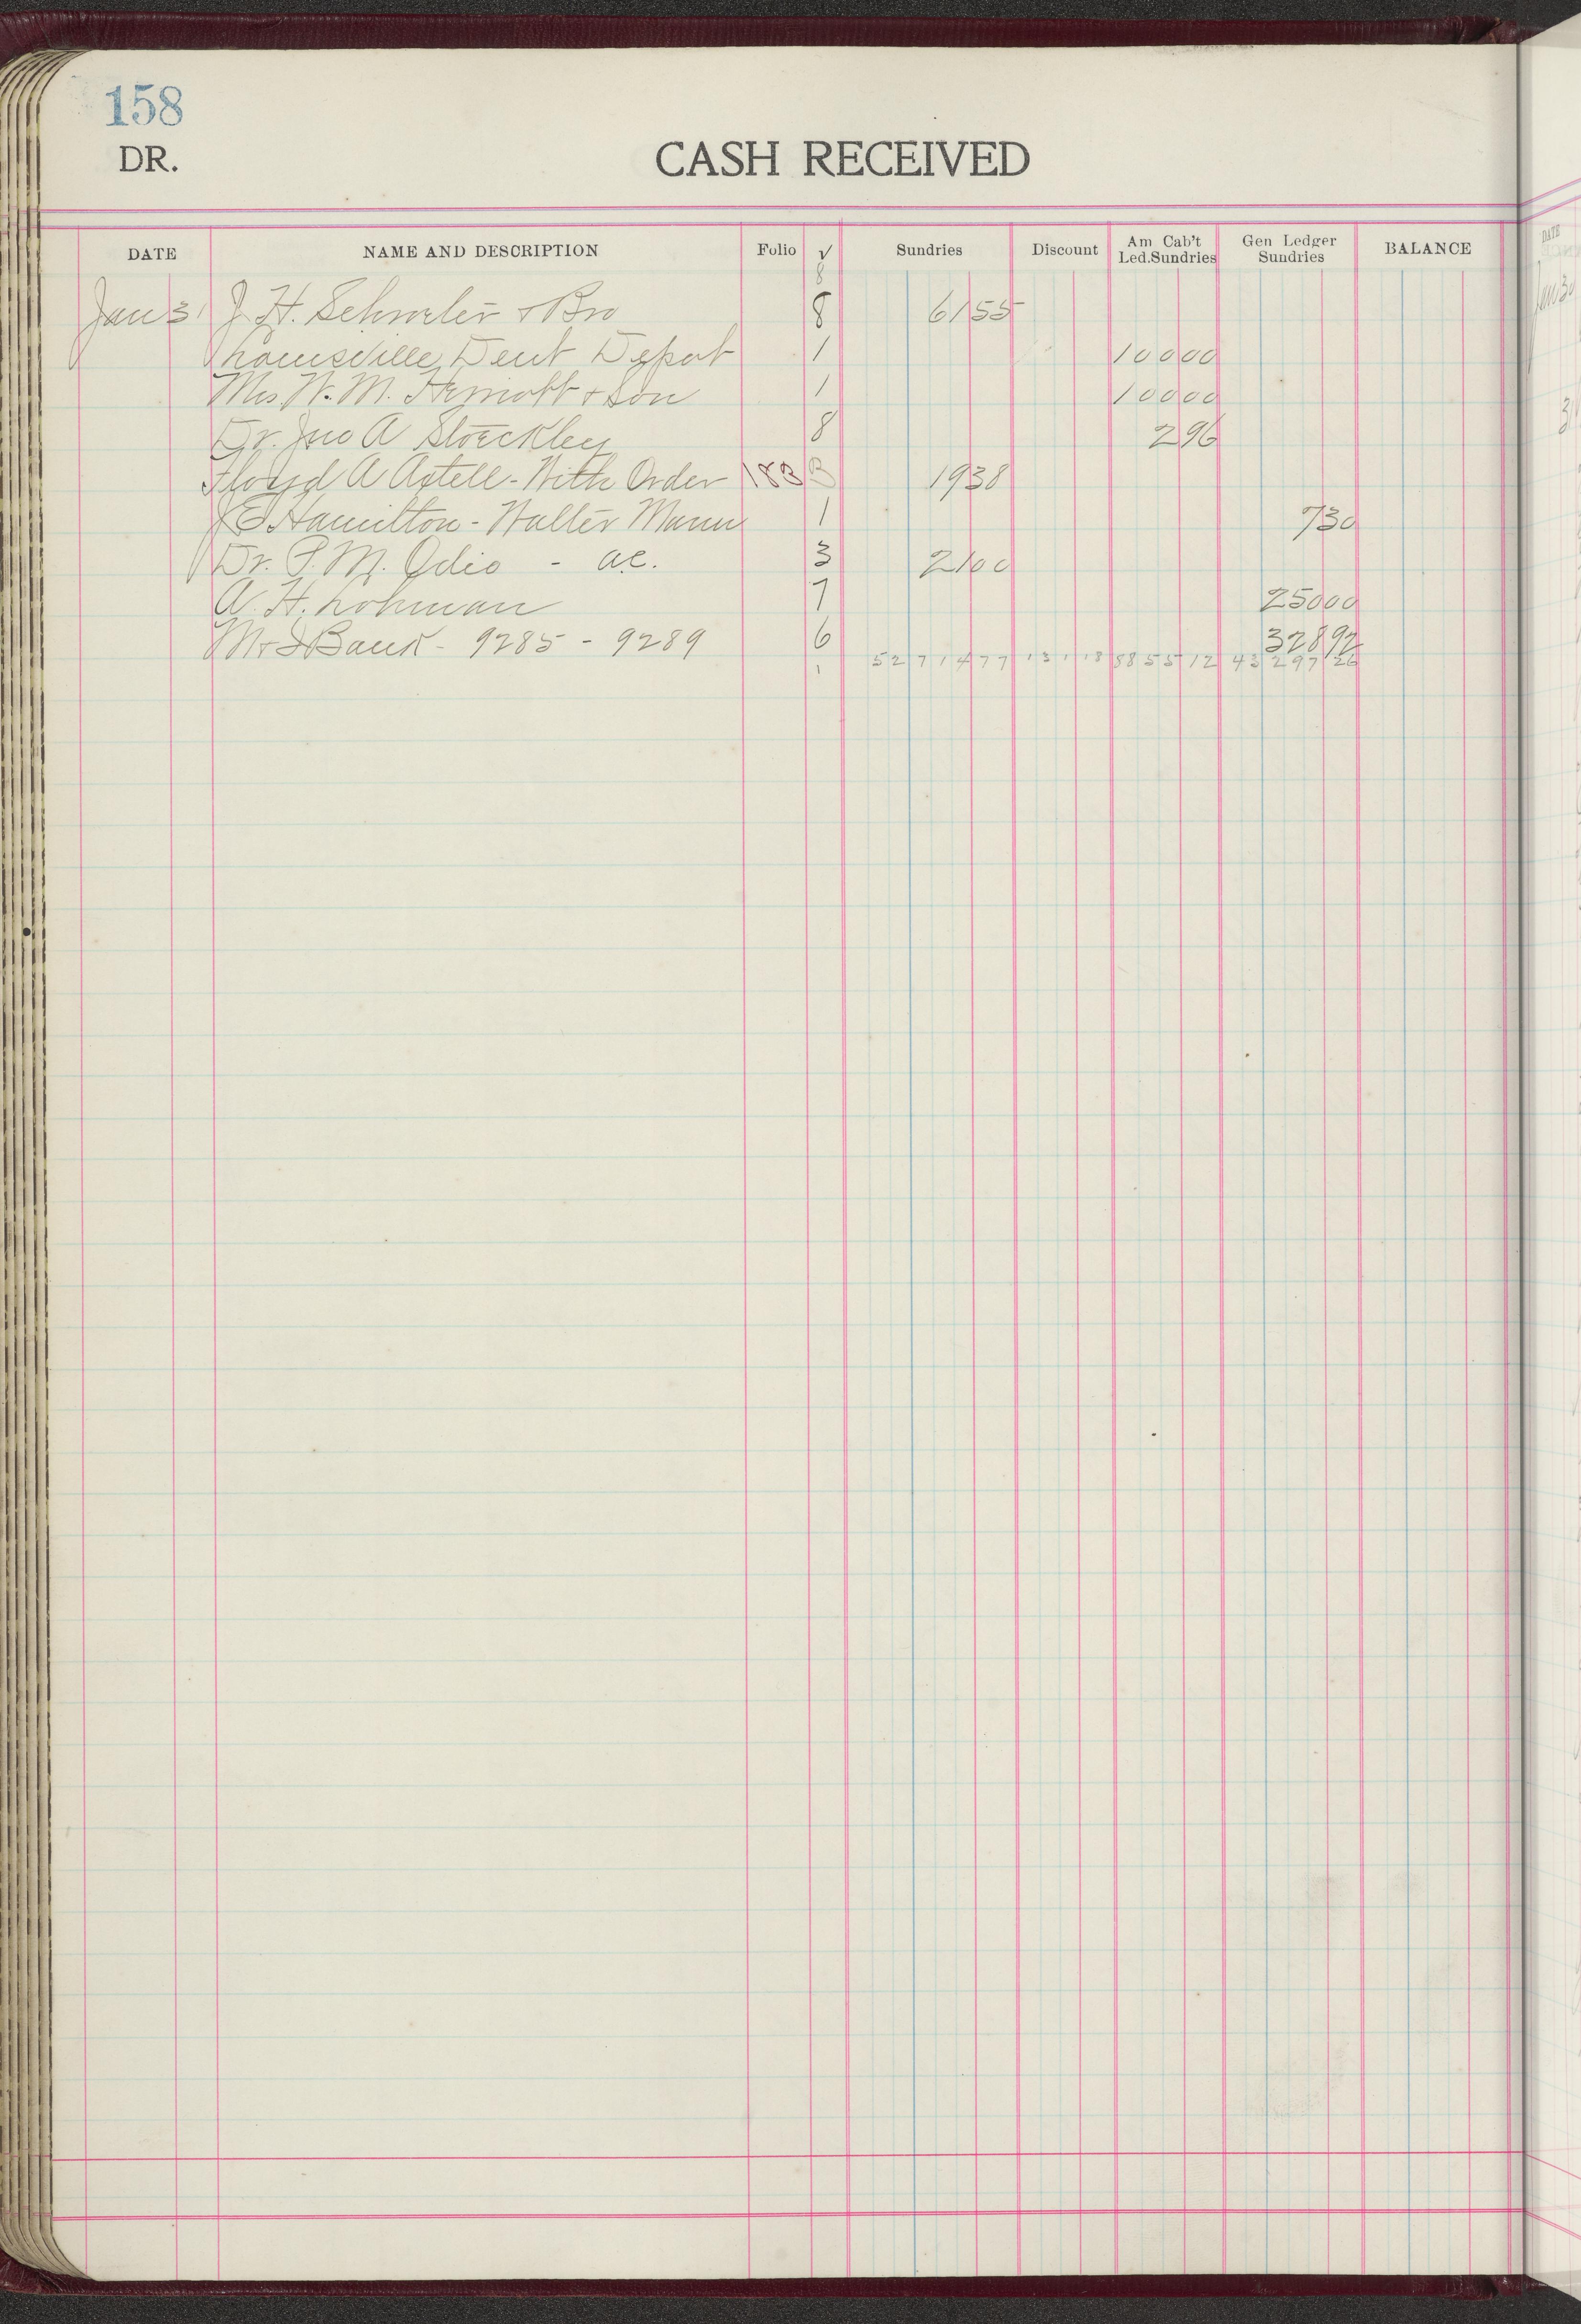 158
DR. CASH RECEIVED
DATE NAME AND DESCRIPTION Folio √ Sundries Discount Am Cab't Led.Sundries Gen Ledger Sundries BALANCE
8
Jan 31 J. H. & Bro 8 6155
Louisville Dent Depot 1 10000
Mrs. W. M. Herriott & Son 1 10000
Dr. Jno A Stoeckley 8 296
Floyd A Axtell - With Order 183 B 1938
J E Hamilton - Walter Mann 1 730
Dr. P. M. Odio - a.c. 3 2100
A. H. Lohman 7 25000
M & I Bank - 9285 - 9289 6 32892
1 52 7 1 4 77 13 1 18 88 55 12 43 297 26